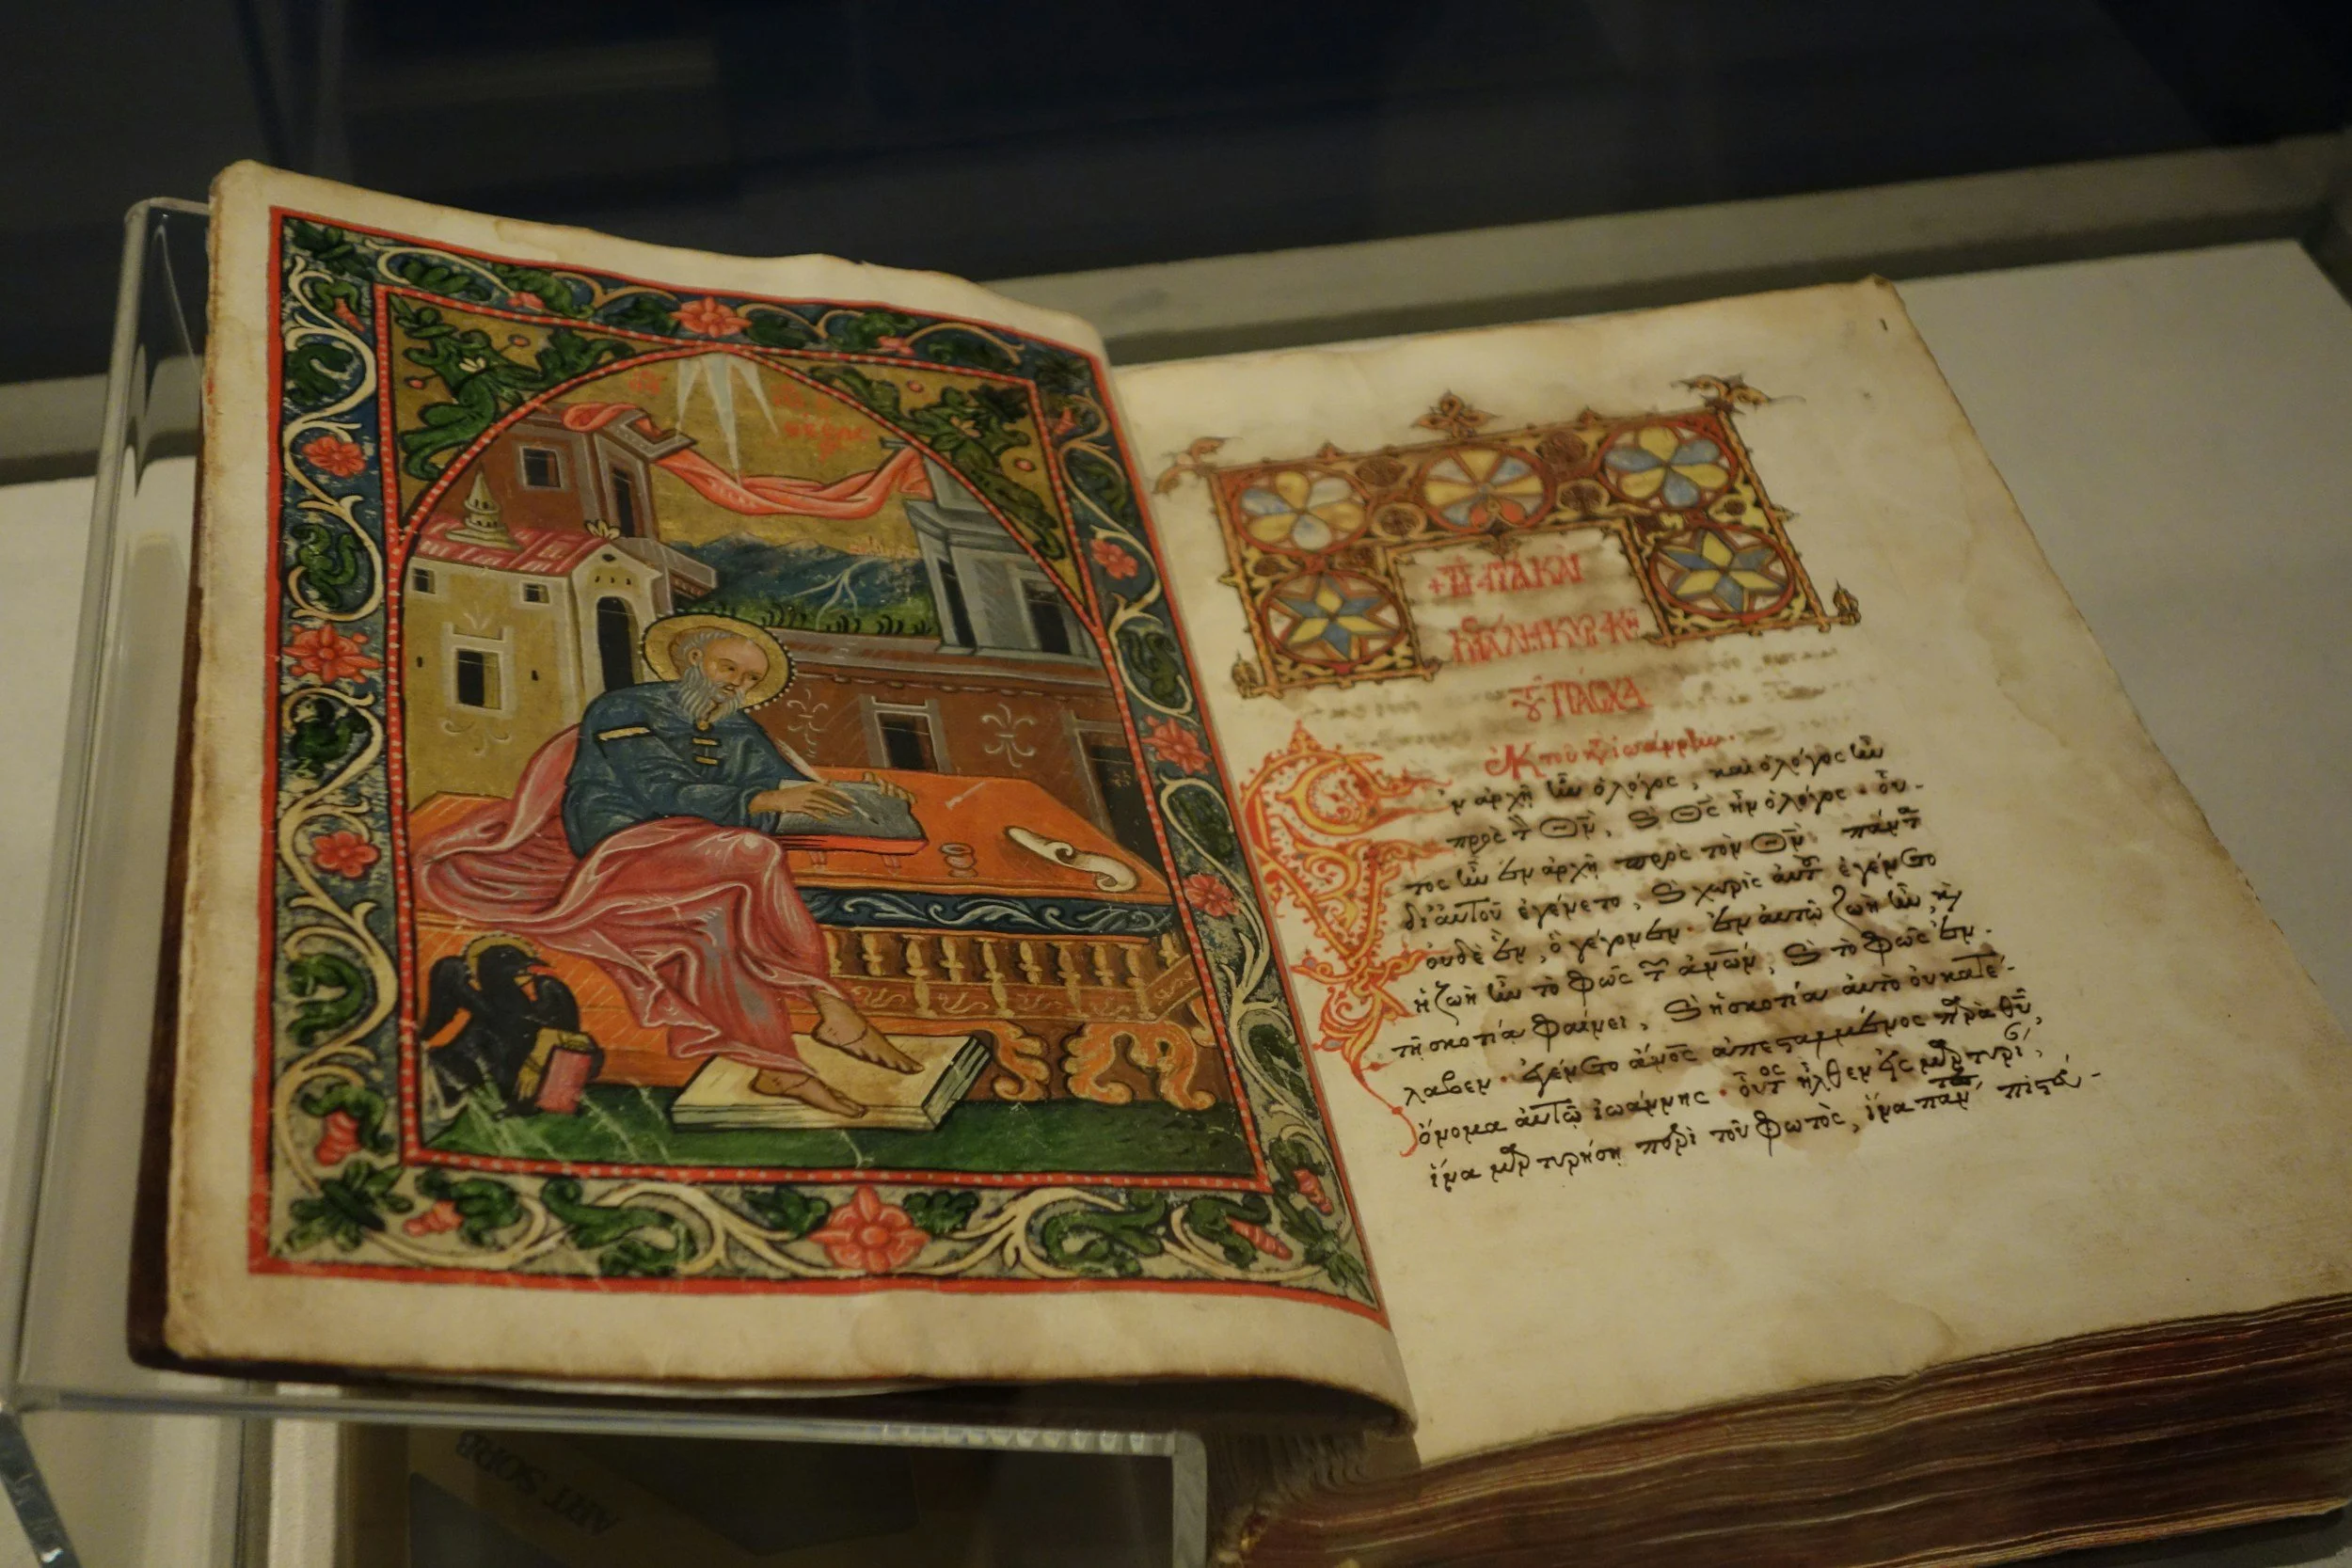 + Τῇ ἁγίᾳ καὶ
μεγάλῃ κυριακῇ
τοῦ πάσχα
ἐκ τοῦ κτ ἰωάννην.
Ἐν ἀρχῇ ἦν ὁ λόγος, καὶ ὁ λόγος ἦν
πρὸς τ Θν̅, ϗ Θς̅ ἦν ὁ λόγος · οὗ-
τος ἦν ἐν ἀρχῇ πρὸς τὸν Θν̅· πάντα
δι' αὐτοῦ ἐγένετο, ϗ χωρὶς αὐτοῦ ἐγένετο
οὐδὲ ἓν, ὃ γέγονεν· ἐν αὐτῷ ζωὴ ἦν, ϗ
ἡ ζωὴ ἦν τὸ φῶς τ ἀνων̅, ϗ τὸ φῶς ἐν
τῇ σκοτία φαίνει, ϗ ἡ σκοτία αὐτὸ οὐ κατέ-
λαβεν· ἐγένετο ἄνος̅ ἀπεσταλμένος παρὰ θυ̅,
ὄνομα αὐτῷ ἰωάννης · οὗτος ἦλθεν εἰς μαρτυρί,
ἵνα μαρτυρήσῃ περὶ τοῦ φωτὸς, ἵνα πάντ πιστεύ-
ART SORB